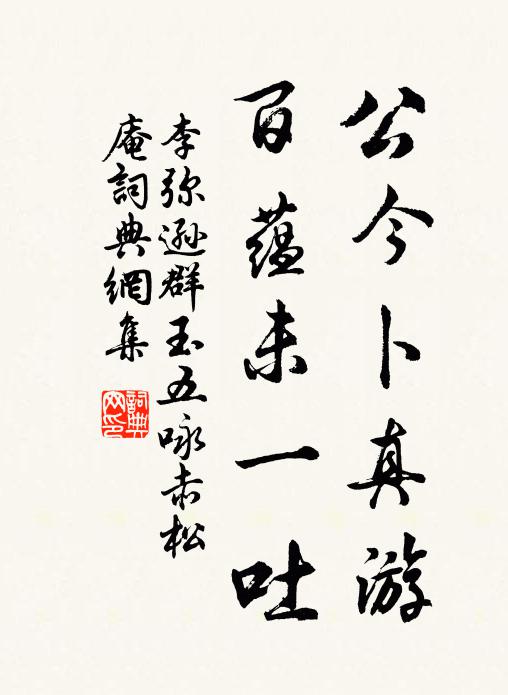 公今卜真游
百蕴未一吐
李弥遜群玉五咏赤松
庵詞典網集
詞典
网印